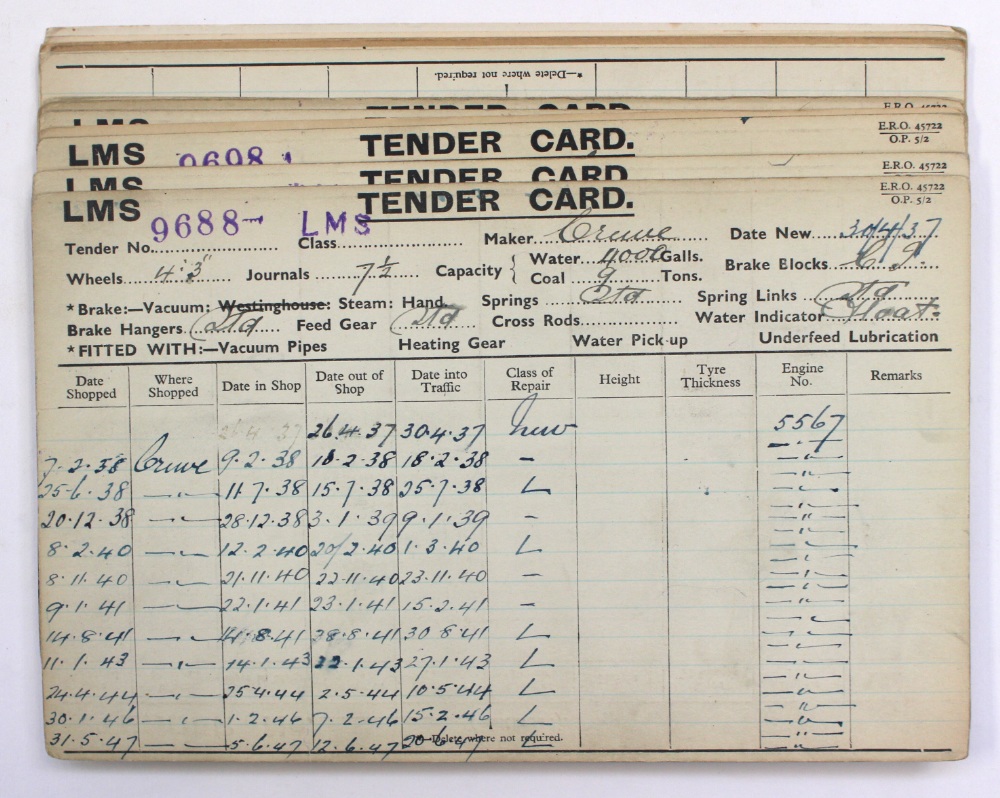 *—Delete where not required.
TENDER CARD. E.R.O. 45722
LMS
LMS 9698 TENDER CARD. E.R.O. 45722
O.P. 5/2
LMS TENDER CARD E.R.O. 45722
LMS TENDER CARD. E.R.O. 45722
O.P. 5/2
Tender No. 9688 Class LMS Maker Crewe Date New 30/4/37
Wheels 4' 3" Journals 7½ Capacity { Water 4000 Galls. Brake Blocks C.I.
Coal 9 Tons.
*Brake:—Vacuum: Westinghouse: Steam: Hand. Springs Std Spring Links Std
Brake Hangers Std Feed Gear Std Cross Rods Water Indicator Float
*FITTED WITH:—Vacuum Pipes Heating Gear Water Pick-up Underfeed Lubrication
Date Shopped Where Shopped Date in Shop Date out of Shop Date into Traffic Class of Repair Height Tyre Thickness Engine No. Remarks
26.4.37 26.4.37 30.4.37 New 5567
7.2.38 Crewe 9.2.38 10.2.38 18.2.38 – –"–
25.6.38 –"– 11.7.38 15.7.38 25.7.38 L –"–
20.12.38 –"– 28.12.38 3.1.39 9.1.39 – –"–
8.2.40 –"– 12.2.40 20/2.40 1.3.40 L –"–
8.11.40 –"– 21.11.40 22.11.40 23.11.40 – –"–
9.1.41 –"– 22.1.41 23.1.41 15.2.41 – –"–
14.8.41 –"– 14.8.41 28.8.41 30.8.41 L –"–
11.1.43 –"– 14.1.43 22.1.43 27.1.43 L –"–
24.4.44 –"– 25.4.44 2.5.44 10.5.44 L –"–
30.1.46 –"– 1.2.46 7.2.46 15.2.46 L –"–
31.5.47 –"– 5.6.47 12.6.47 20.6.47 L –"–
*—Delete where not required.